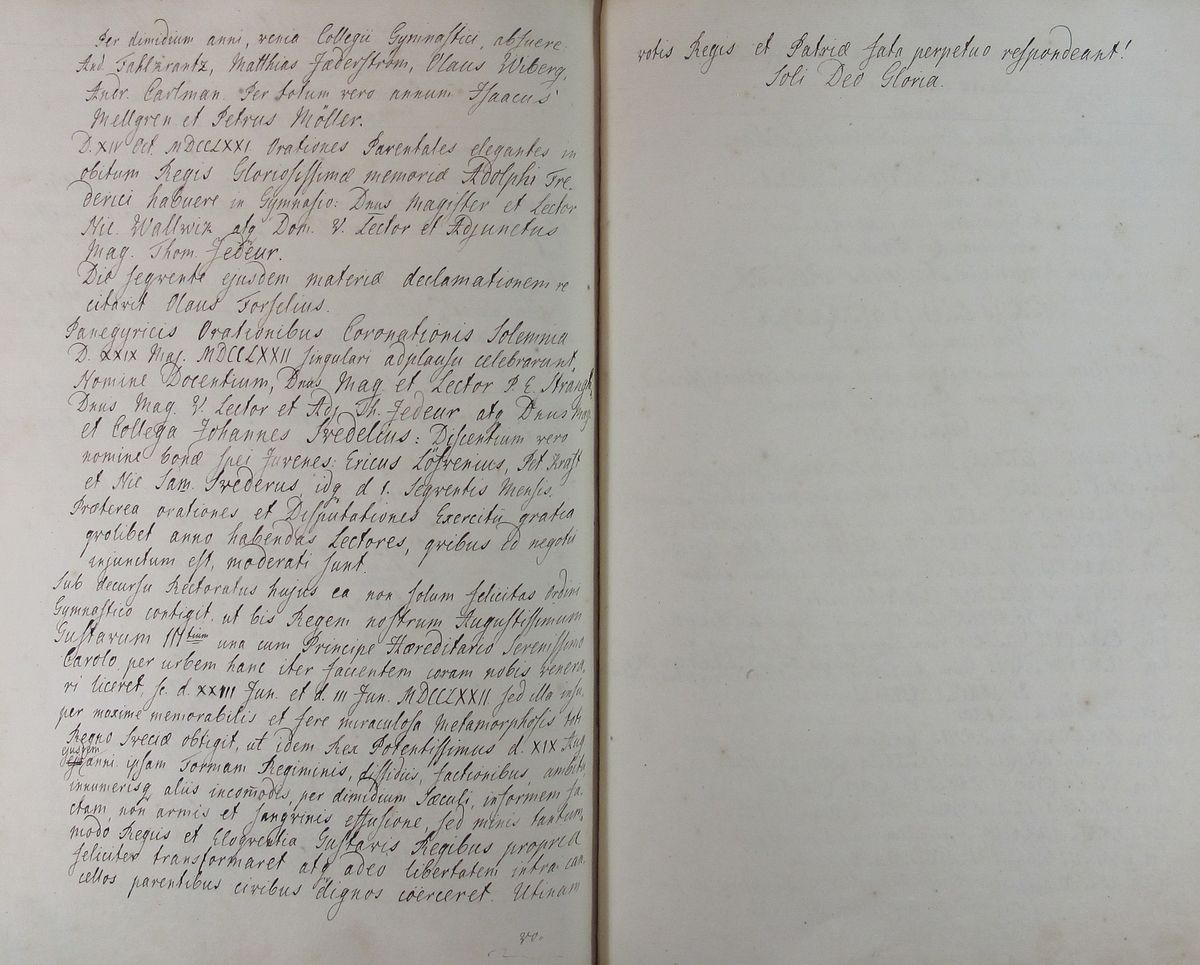 Per dimidium anni, venia Collegii Gymnastici, abfuere
And Fahlkrantz, Matthias Jäderström, Olaus Wiberg,
Andr. Carlman. Per totum vero annum Isaacus
Mellgren et Petrus Möller.
D. XIV Oct. MDCCLXXI Orationes Parentales elegantes in
obitum Regis Gloriosissimæ memoriæ Adolphi Fre-
derici habuere in Gymnasio: Dnus Magister et Lector
Nic. Wallwik atq Dom. V. Lector et Adjunctus
Mag. Thom. Fedeur.
Die seqvente ejusdem materiæ declamationem re
citavit Olaus Forselius.
Panegyricis Orationibus Coronationis Solemnia
D. XXIX Maj. MDCCLXXII singulari adplausu celebrarunt,
Nomine Docentium, Dnus Mag et Lector P. E. Strangh,
Dnus Mag. V. Lector et Adj. Th. Fedeur atq Dnus Mag.
et Collega Johannes Svedelius: Discentium vero
nomine bonæ spei Juvenes: Ericus Löfvenius, Pet Kraft
et Nic Sam. Svederus, idq d 1. Seqventis Mensis.
Præterea orationes et Disputationes Exercitii gratia
qvolibet anno habendas Lectores, qvibus id negotii
injunctum est, moderati sunt.
Sub decursu Rectoratus hujus ea non solum felicitas Ordini
Gymnastico contigit, ut bis Regem nostrum Augustissimum
Gustavum III tium una cum Principe Hæreditario Serenissimo
Carolo, per urbem hanc iter facientem coram nobis venera
ri liceret, sc. d. XXIII Jun. et d. III Jun. MDCCLXXII sed illa insu,
per maxime memorabilis et fere miraculosa Metamorphosis toti
Regno Sveciæ obtigit, ut idem Rex Potentissimus d. XIX Aug
ejusdem anni ipsam Formam Regiminis, dissidiis, factionibus ambitu,
innumerisq aliis incommodis, per dimidium Sæculi, informem fa,
ctam, non armis et sangvinis effusione, sed minis tantum,
modo Regiis et Eloqventia Gustavis Regibus propria
feliciter transformaret atq adeo libertatem intra can
cellos parentibus civibus dignos coërceret. Utinam
vo.
votis Regis et Patriæ fata perpetuo respondeant!
Soli Deo Gloria.